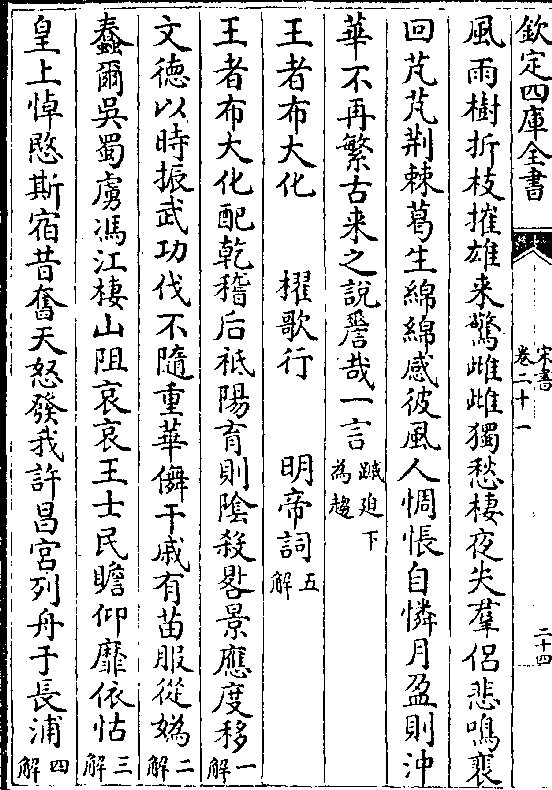 欽定四庫全書
宋書
卷二十一
二十四
風雨樹折枝摧雄来驚雌雌獨愁棲夜失羣侣悲鳴裵
回芃芃荆棘葛生綿綿感彼風人惆悵自憐月盈則沖
華不再繁古来之説嗟哉一言
踧廹下
為趨
王者布大化 櫂歌行 明帝詞
五
解
王者布大化配乾稽后祇陽育則陰殺晷景應度移
一
解
文德以時振武功伐不隨重華儛干戚有苗服從媯
二
解
蠢爾吳蜀虜馮江棲山阻哀哀王士民瞻仰靡依怙
三
解
皇上悼愍斯宿昔奮天怒發我許昌宮列舟于長浦
四
解